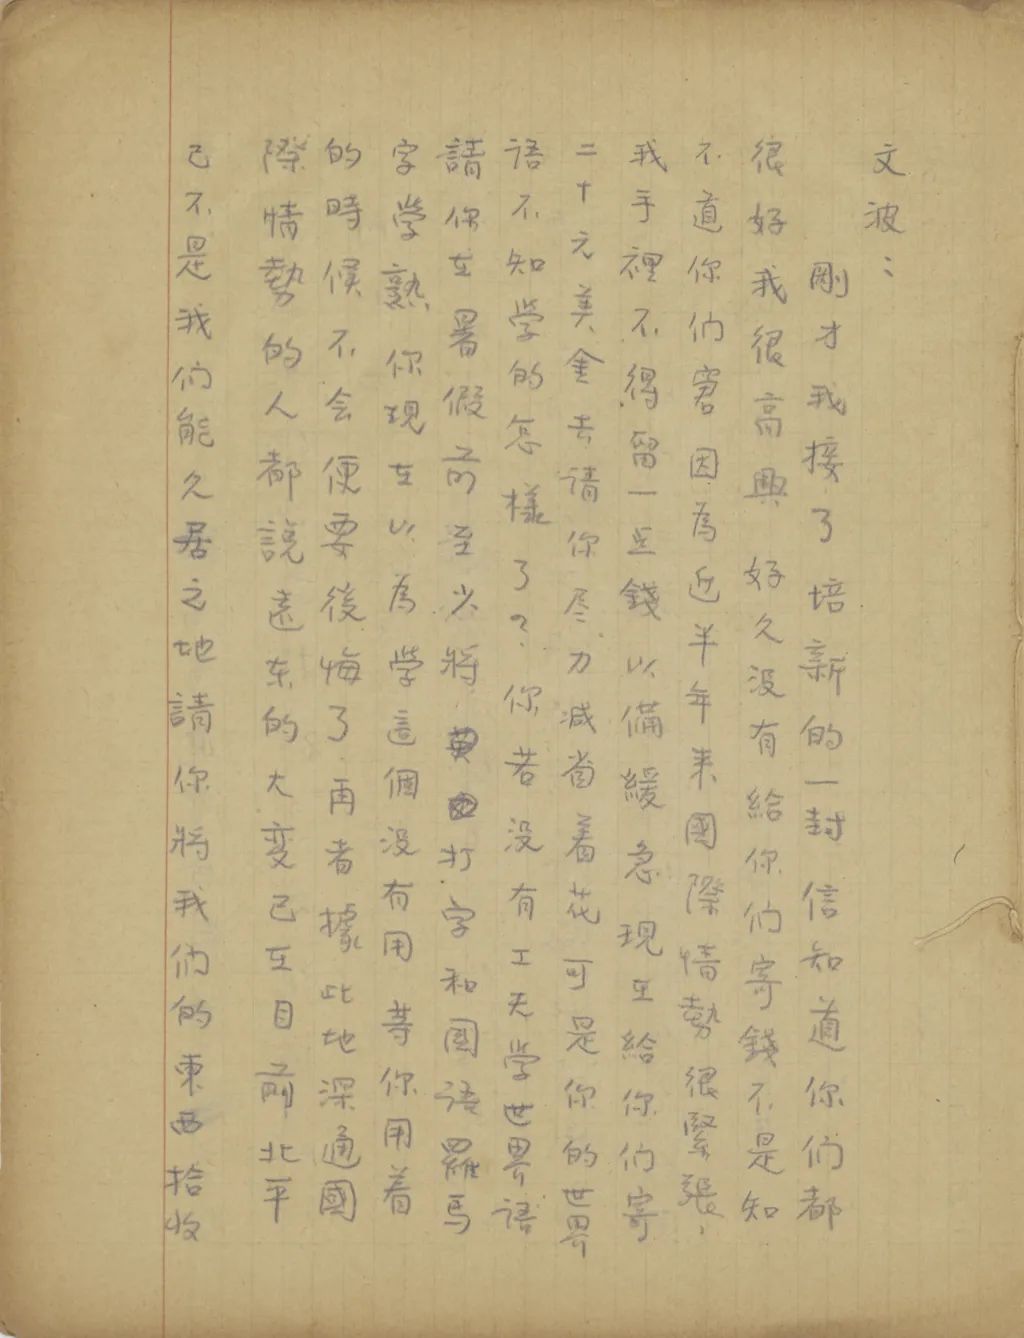 文波：
剛才我接了培新的一封信知道你们都
很好我很高興 好久没有給你们寄錢不是知
不道你们窘因為近半年来國際情勢很緊張，
我手裡不得留一点錢以備緩急 現在給你们寄
二十元美金去请你尽力减省着花 可是你的世界
语不知学的怎樣了？你若没有工夫学世界语
請你在暑假前至少將打字和國语羅馬
字學熟 你現在以為學這個没有用 等你用着
的時候不会便要後悔了 再者據此地深通國
際情勢的人都説远东的大变已在目前 北平
已不是我们能久居之地 請你將我们的東西拾收